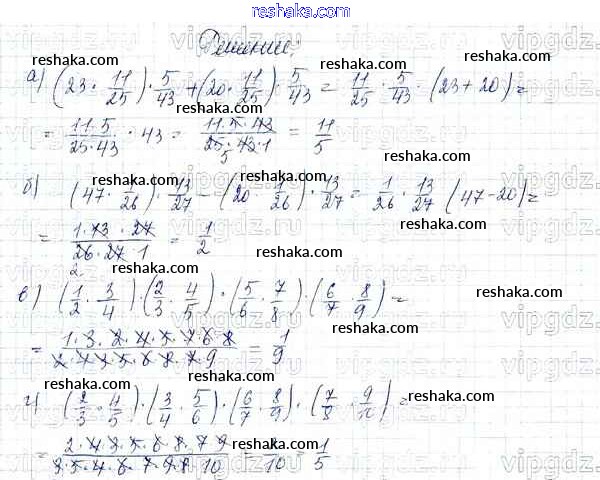 reshaka.com
Решение:
reshaka.com reshaka.com reshaka.com
а) (23 · 11/25) · 5/43 + (20 · 11/25) · 5/43 = 11/25 · 5/43 · (23 + 20) =
= 11·5/25·43 · 43 = 11·5·43/25·43·1 = 11/5
5
reshaka.com reshaka.com
reshaka.com reshaka.com reshaka.com
б) (47 · 1/26) · 13/27 - (20 · 1/26) · 13/27 = 1/26 · 13/27 (47 - 20) =
= 1·13·27/26·27·1 = 1/2
2
reshaka.com
reshaka.com reshaka.com reshaka.com
в) (1/2 · 3/4) · (2/3 · 4/5) · (5/6 · 7/8) · (6/7 · 8/9) =
reshaka.com
= 1·3·2·4·5·7·6·8/2·4·3·5·6·8·7·9 = 1/9
reshaka.com reshaka.com
г) (2/3 · 4/5) · (3/4 · 5/6) · (6/7 · 8/9) · (7/8 · 9/10) =
reshaka.com
= 2·4·3·5·6·8·7·9/3·5·4·6·7·9·8·10 = 2/10 = 1/5
reshaka.com reshaka.com